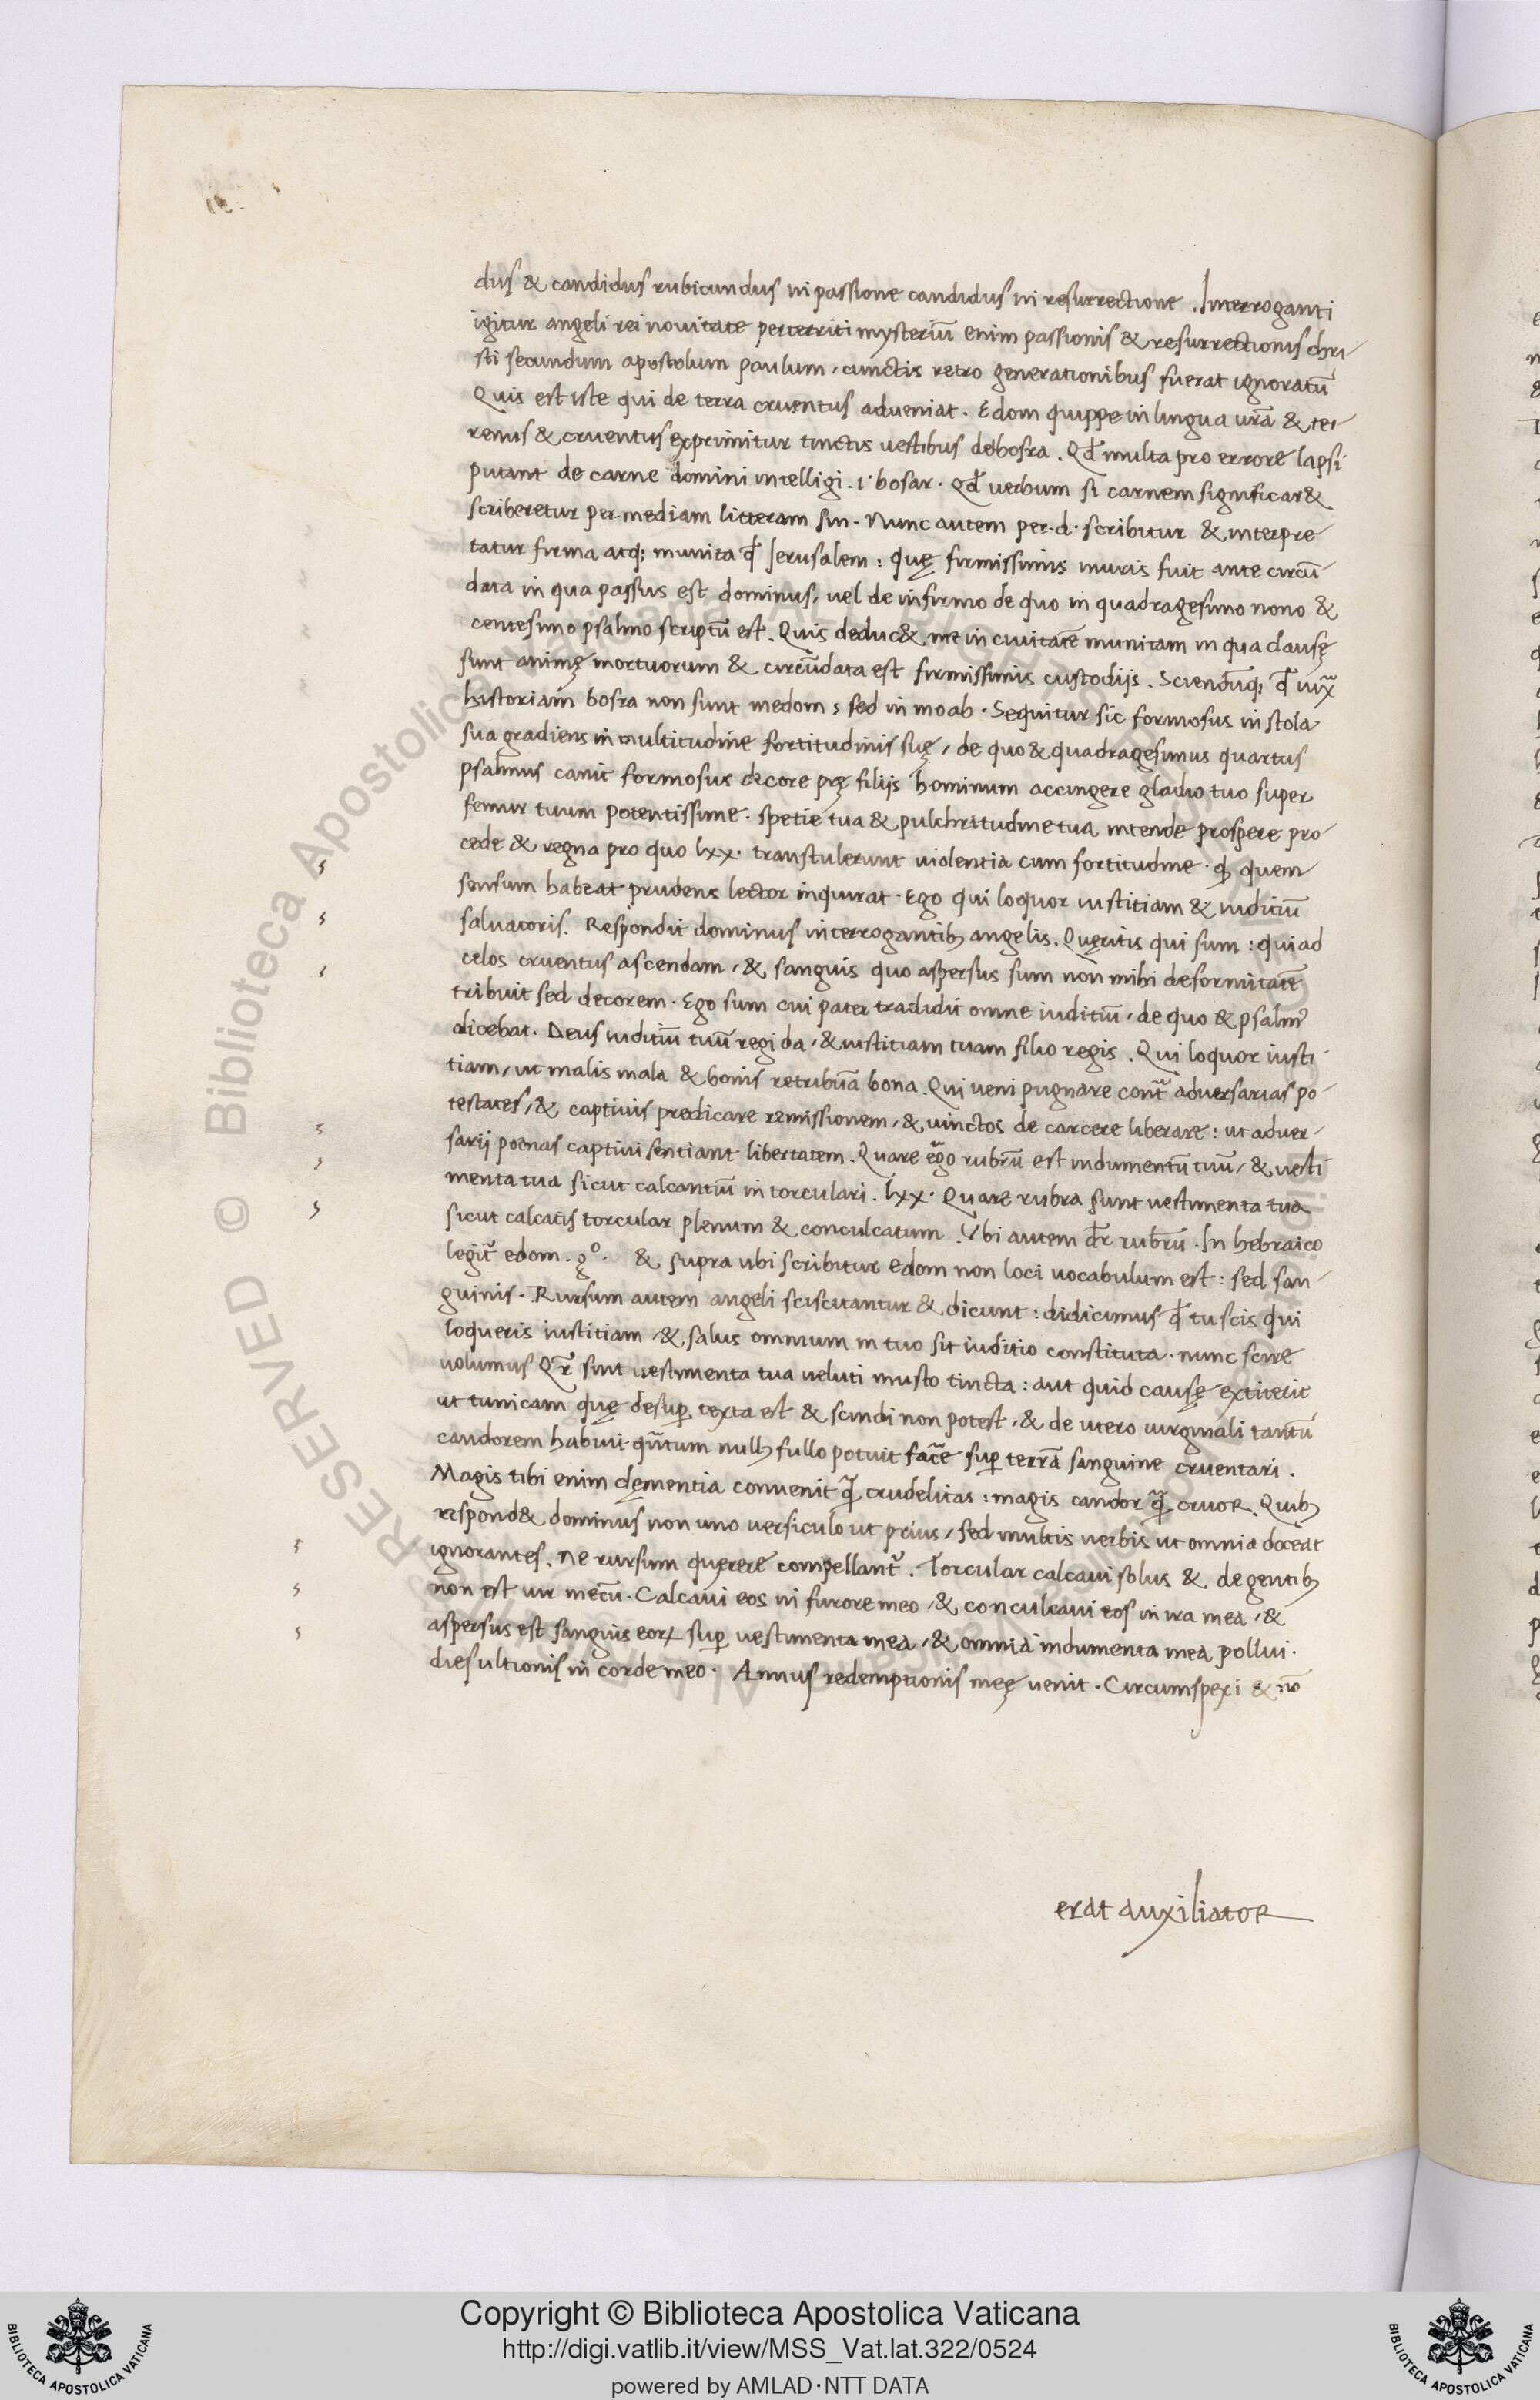 dus & candidus rubicundus in passione candidus in resurrectione. Interroganti
igitur angeli rei nouitate perterriti mysteriū enim passionis & resurrectionis chri
sti secundum apostolum paulum, cunctis retro generationibus fuerat ignoratū
Quis est iste qui de terra cruentus adueniat. Edom quippe in lingua urā & ter
renus & cruentus exprimitur tinctis uestibus de bosra. Qđ multa pro errore lapsi
putant de carne domini intelligi .i. bosar. Qđ uerbum si carnem significar&
scriberetur per mediam litteram sin. Nunc autem per .d. scribitur & interpre
tatur firma atq; munita q̄ Jerusalem: quę firmissimis muris fuit ante circū
data in qua passus est dominus, uel de infirmo de quo in quadragesimo nono &
centesimo psalmo scriptū est. Quis deduc& me in ciuitatē munitam in qua clausę
sunt animę mortuorum & circūdata est firmissimis custodijs. Sciendūq; q̄ iuxᵃ
historiam bosra non sunt inedom; sed in moab. Sequitur sic formosus in stola
sua gradiens in multitudine fortitudinis suę, de quo & quadragesimus quartus
psalmus canit formosus decore prę filijs hominum accingere gladio tuo super
femur tuum potentissime. spetie tua & pulchritudine tua intende prospere pro
cede & regna pro quo lxx. transtulerunt uiolentia cum fortitudine. q̄ quem
sensum habeat prudens lector inquirat. Ego qui loquor iustitiam & iuditiū
saluatoris. Respondit dominus interrogantib; angelis. Quęritis qui sum: qui ad
celos cruentus ascendam, & sanguis quo aspersus sum non mihi deformitatē
tribuit sed decorem. Ego sum cui pater tradidit omne iuditiū, de quo & psalm᾿
dicebat. Deus iuditiū tuū regi da, & iustitiam tuam filio regis. Qui loquor iusti
tiam, ut malis mala & bonis retribuā bona. Qui ueni pugnare cont̄ aduersarias po
testates, & captiuis predicare remissionem, & uinctos de carcere liberare: ut aduer
sarij poenas captiui sentiant libertatem. Quare ergo rubrū est indumentū tuū, & uesti
menta tua sicut calcantiū in torculari. lxx. Quare rubra sunt uestimenta tua
sicut calcatis torcular plenum & conculcatum. Vbi autem dr̄ rubrū. In hebraico
legit̄ edom. & supra ubi scribitur edom non loci uocabulum est: sed san
guinis. Rursum autem angeli sciscitantur & dicunt: didicimus q̄ tu scis qui
loqueris iustitiam, & salus omnium in tuo sit iuditio constituta. nunc scire
uolumus Qr̄ sint uestimenta tua ueluti musto tincta: aut quid causę extiterit
ut tunicam quę desup̱ texta est & scindi non potest, & de utero uirginali tantū
candorem habuit qn̄tum null; fullo potuit fac̄e sup̱ terrā sanguine cruentari.
Magis tibi enim clęmentia conuenit q̄ crudelitas: magis candor q̄ cruor. Quib;
respond& dominus non uno uersiculo ut prius, sed multis uerbis ut omnia doceat
ignorantes. Ne rursum quęrere compellant̄. Torcular calcaui solus & de gentib;
non est uir mecū. Calcaui eos in furore meo, & conculcaui eos in ira mea, &
aspersus est sanguis eorꝝ sup̱ uestimenta mea, & omnia indumenta mea pollui.
dies ultionis in corde meo. Annus redemptionis meę uenit. Circumspexi & nō
erat auxiliator
Copyright © Biblioteca Apostolica Vaticana
http://digi.vatlib.it/view/MSS_Vat.lat.322/0524
powered by AMLAD·NTT DATA